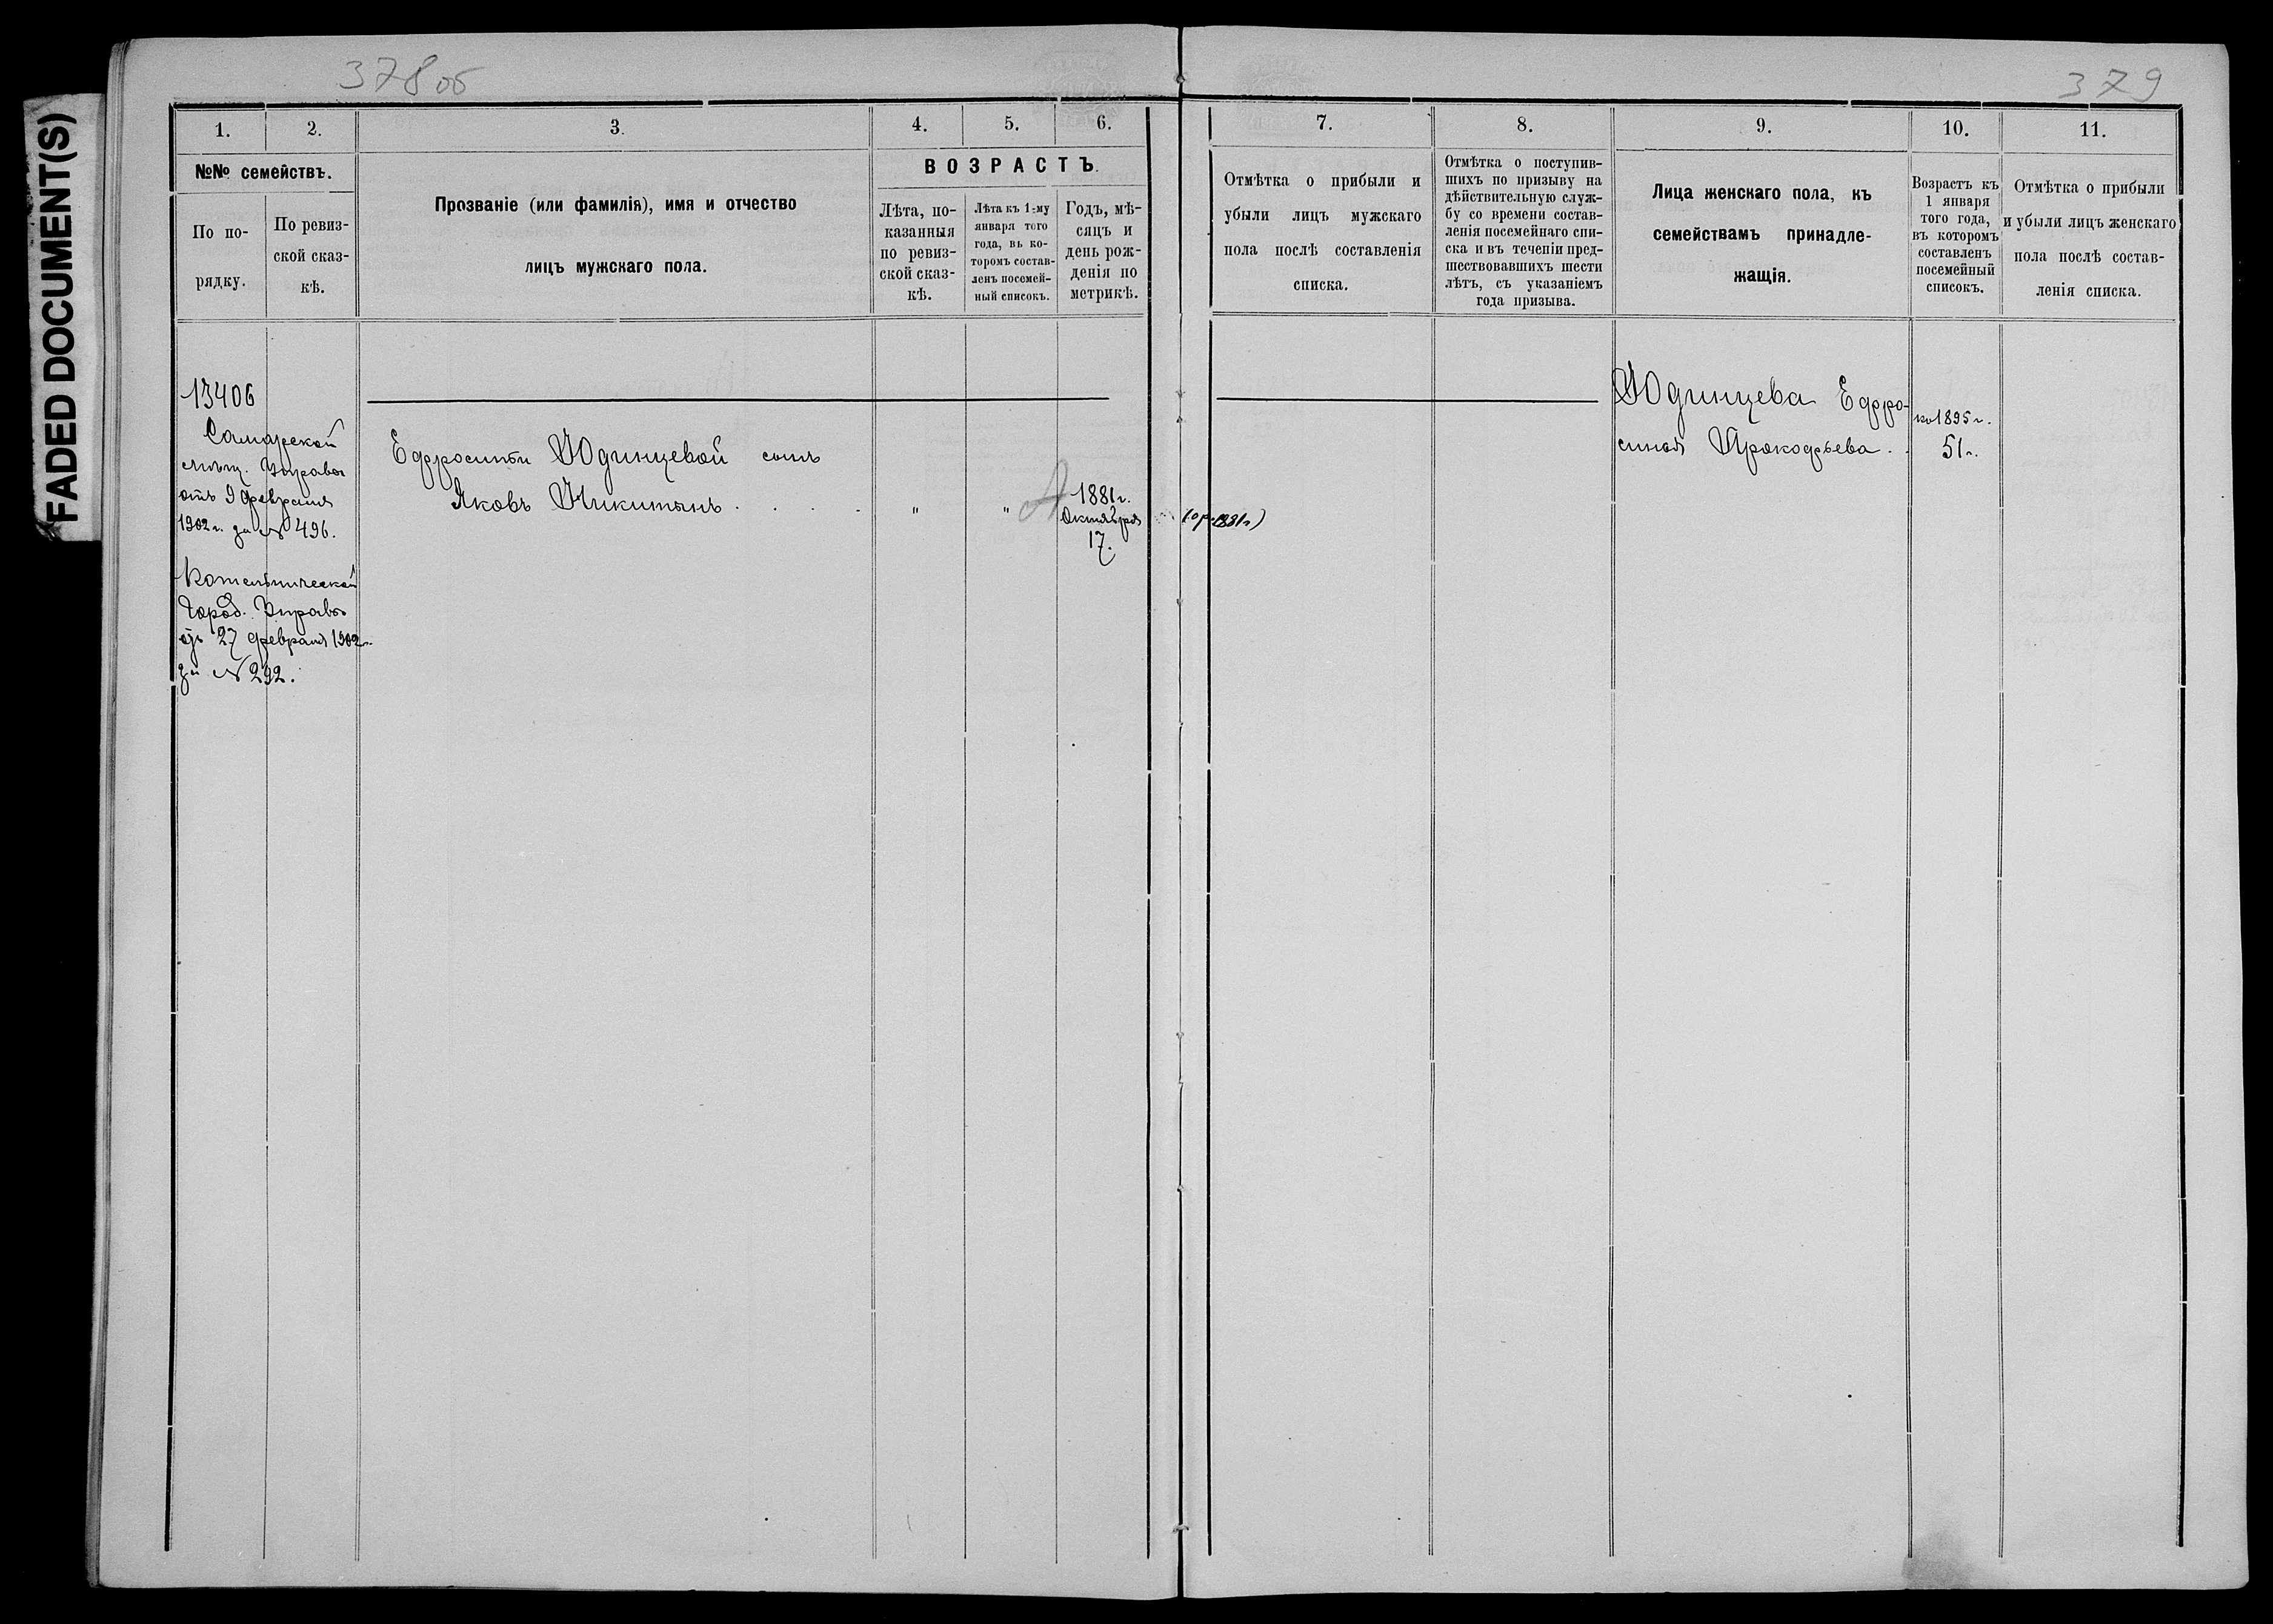 FADED DOCUMENT(S)
378 об
379
1.
2.
3.
4.
5.
6.
№№ семействъ.
По по-
рядку.
По ревиз-
ской сказ-
кѣ.
Прозваніе (или фамилія), имя и отчество
лицъ мужскаго пола.
ВОЗРАСТЪ.
Лѣта, по-
казанныя
по ревиз-
ской сказ-
кѣ.
Лѣта къ 1-му
января того
года, въ ко-
торомъ состав-
ленъ посемей-
ный списокъ.
Годъ, мѣ-
сяцъ и
день рож-
денія по
метрикѣ.
7.
8.
9.
10.
11.
Отмѣтка о прибыли и
убыли лицъ мужскаго
пола послѣ составленія
списка.
Отмѣтка о поступив-
шихъ по призыву на
дѣйствительную служ-
бу со времени состав-
ленія посемейнаго спи-
ска и въ теченіи пред-
шествовавшихъ шести
лѣтъ, съ указаніемъ
года призыва.
Лица женскаго пола, къ
семействамъ принадле-
жащія.
Возрастъ къ
1 января
того года,
въ которомъ
составленъ
посемейный
списокъ.
Отмѣтка о прибыли
и убыли лицъ женскаго
пола послѣ состав-
ленія списка.
13406
Самарской
мѣщ. Управы
отъ 9 февраля
1902 г. за № 496.
Котельнической
Город. Управы
отъ 27 февраля 1902 г.
за № 292.
Ефросиньи Юдинцевой сынъ
Яковъ Никитинъ . . . .
"
"
1881 г.
Октября
17.
1881 г)
Юдинцева Ефро-
синья Прокофьева.
къ 1895 г.
51 г.